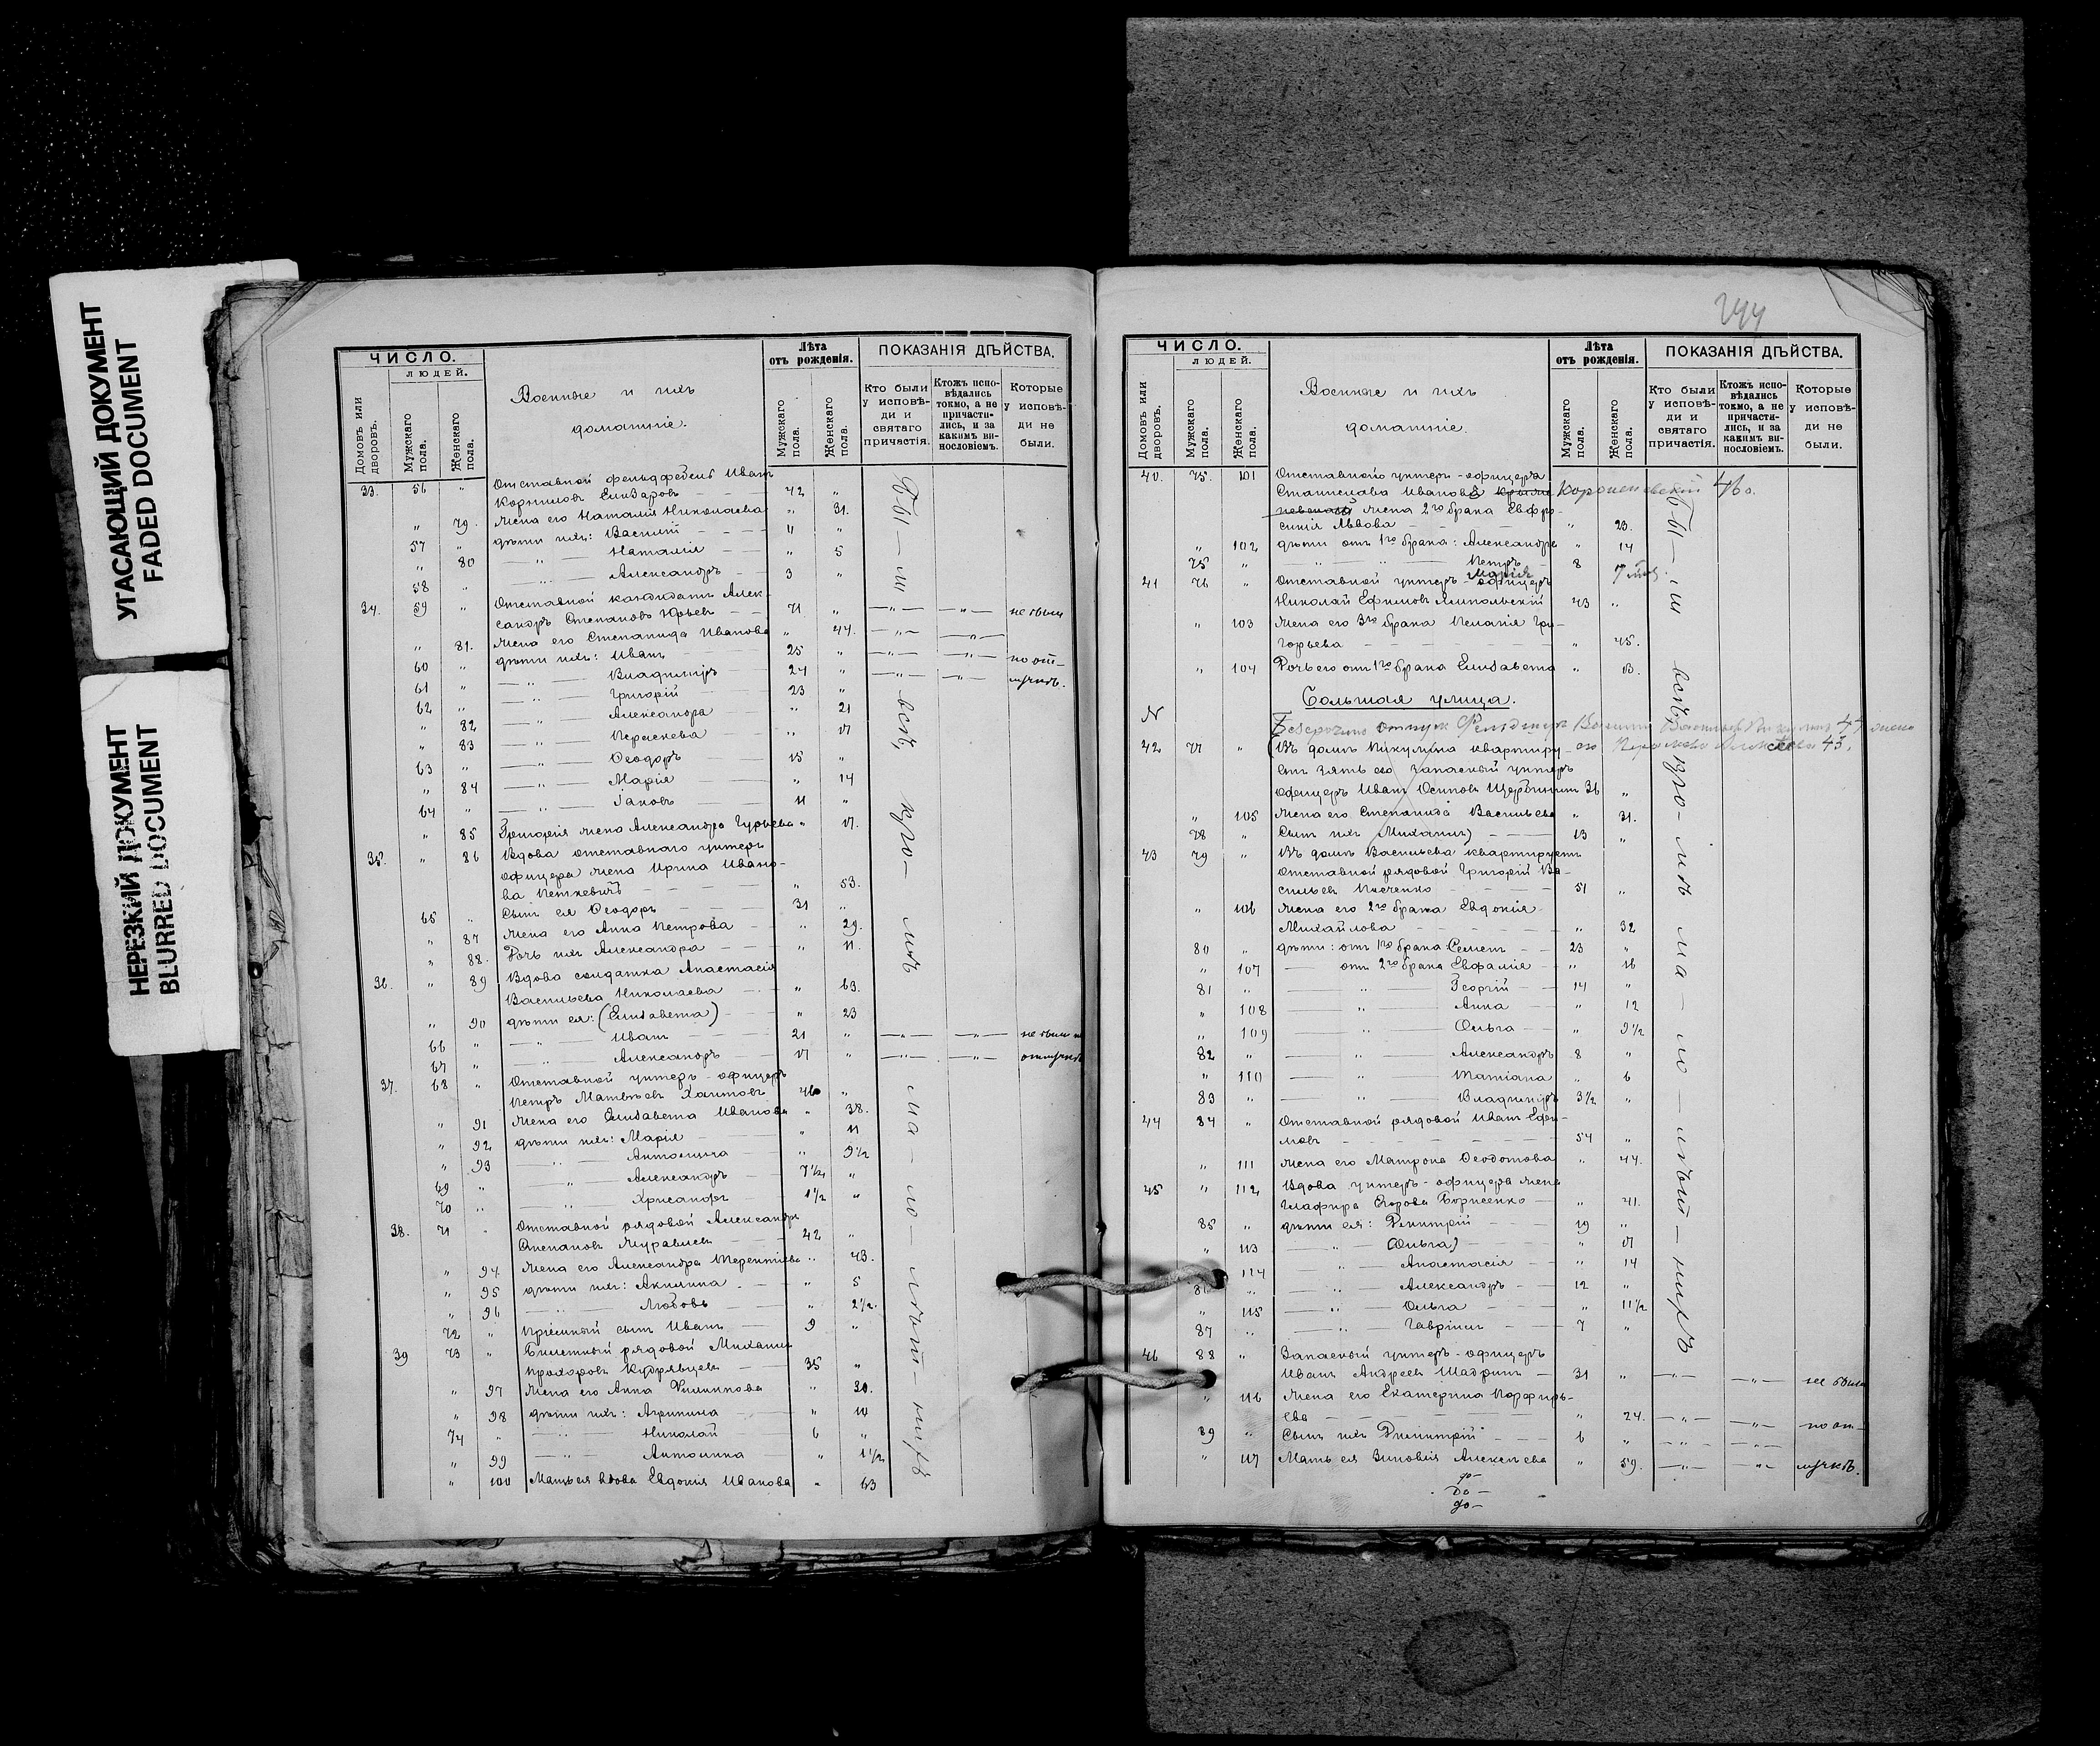 УГАСАЮЩИЙ ДОКУМЕНТ
FADED DOCUMENT
НЕРЕЗКИЙ ДОКУМЕНТ
BLURRED DOCUMENT
ЧИСЛО.
ЛЮДЕЙ.
Домовъ или дворовъ.
Мужскаго пола.
Женскаго пола.
Военные и ихъ
домашніе.
Лѣта
отъ рожденія.
Мужскаго пола.
Женскаго пола.
ПОКАЗАНІЯ ДѢЙСТВА.
Кто были у исповѣди и святаго причастія.
Ктожъ исповѣдались токмо, а не причастились, и за какимъ винословіемъ.
Которые у исповѣди не были.
33. 56 " Отставной фельдфебель Иванъ
Корниловъ Елизаровъ — — 42 "
" 79. Жена его Наталія Николаева " 31.
57 " дѣти ихъ: Василій — — — 11 "
" 80 — " — Наталія — — " 5
58 " — " — Александръ — 3 "
34. 59 " Отставной кандидатъ Алек-
сандръ Степановъ Юрьевъ — — 71 " — " — — " — не были
" 81. Жена его Степанида Иванова " 44. — " — — " —
60 " дѣти ихъ: Иванъ — — 25 " — " — — " — по от-
61 " — " — Владиміръ — 24 " — " — — " — лучкѣ.
62 " — " — Григорій — 23 "
" 82 — " — Александра " 21
" 83 — " — Параскева — " 17
63 " — " — Ѳеодоръ — 15 "
" 84 — " — Марія — " 14
64 " — " — Іаковъ — 11 "
" 85 Григорія жена Александра Гурьева " 17.
35. " 86 Вдова отставнаго унтеръ
офицера жена Ирина Ивано-
ва Петкевичъ — — — — " 53.
65 " Сынъ ея Ѳеодоръ — — — 31 "
" 87 Жена его Анна Петрова — — " 29.
" 88. Дочь ихъ Александра — — " 11.
36. " 89 Вдова солдатка Анастасія
Васильева Николаева — — " 63.
" 90 дѣти ея: (Елизавета) — — " 23
66 " — " — Иванъ — — 21 " — " — — " — не были по
67 " — " — Александръ — 17 " — " — — " — отлучкѣ
37. 68 " Отставной унтеръ-офицеръ
Петръ Матвѣевъ Хаитовъ 46 "
" 91 Жена его Елизавета Иванова " 38.
" 92 дѣти ихъ: Марія — — " 11
" 93 — " — Антонина — " 9½
69 " — " — Александръ — 7½ "
70 " — " — Хрисанфъ 1½ "
38. 71 " Отставной рядовой Александръ
Степановъ Журавлевъ — — 42 "
" 94 Жена его Александра Терентіева " 43.
" 95 дѣти ихъ: Акилина — — " 5
" 96 — " — Любовь — — " 2½.
72 " Пріемный сынъ Иванъ — — 9 "
39 73 " Билетный рядовой Михаилъ
Прохоровъ Кудрявцевъ — — 35 "
" 97 Жена его Анна Филиппова " 30.
" 98 дѣти ихъ: Агрипина — — " 10
74 " — " — Николай — 6 "
" 99 — " — Антонина " 1½
" 100 Мать ея вдова Евдокія Иванова " 63
Бы — ш всѣ, кро — мѣ ма — ло — лѣт — нихъ
244
ЧИСЛО.
ЛЮДЕЙ.
Домовъ или дворовъ.
Мужскаго пола.
Женскаго пола.
Военные и ихъ
домашніе.
Лѣта
отъ рожденія.
Мужскаго пола.
Женскаго пола.
ПОКАЗАНІЯ ДѢЙСТВА.
Кто были у исповѣди и святаго причастія.
Ктожъ исповѣдались токмо, а не причастились, и за какимъ винословіемъ.
Которые у исповѣди не были.
40. 75. 101 Отставного унтеръ-офицера
Станислава Иванова
жена 2го брака Евфро-
синія Львова — — — " 23.
" 102 дѣти отъ 1го брака: Александра " 14
75 " — " — " Петръ — 8
Марія
41 76 " Отставной унтеръ офицеръ
Николай Ефимовъ 43 "
" 103 Жена его 3го брака Пелагія Гри-
горьева — — — — " 45.
" 104 Дочь его отъ 1го брака Елизавета " 13.
Большая улица.
42 77 " (Въ домѣ Пикулина квартиру-
етъ зять его запасный унтеръ
офицеръ Иванъ Осиповъ Щербининъ 36 "
" 105 Жена его Степанида Васильева " 31.
78 " Сынъ ихъ Михаилъ) — — 13 "
43 79 " Въ домѣ Васильева квартируетъ
отставной рядовой Григорій Ва-
сильевъ — — — 51 "
" 106 Жена его 2го брака Евдокія
Михайлова — — — " 32
80 " дѣти: отъ 1го брака: Семенъ — — 23 "
" 107 — отъ 2го брака Евфалія — " 16
81 " — " — Георгій — — 14 "
" 108 " — Анна — " 12
" 109 " — Ольга — " 9½
82 " — " — Александръ 8 "
" 110 — " — Татіана " 6
83 " — " — Владиміръ 3½ "
44 84 " Отставной рядовой Иванъ Ефи-
мовъ — — — — 54 "
" 111 Жена его Матрона Ѳеодотова " 44.
45 " 112 Вдова унтеръ-офицера жена
Глафира Егорова Борисенко — " 41.
85 " дѣти ея: Димитрій — — 19 "
" 113 — " — (Ольга) — " 17
" 114 " — Анастасія — " 14
86 " — " — Александръ — 12 "
" 115 — " — Ольга — " 11½
87 " — " — Гавріилъ — 7 "
46 88 " Запасный унтеръ-офицеръ
Иванъ Андреевъ Шадринъ — 31 " — " — — " — не были
" 116 Жена его Екатерина Порфирь-
ева — — — — " 24. — " — — " — по от-
89 " Сынъ ихъ Димитрій — — — 6 " — " — — " —
" 117 Мать ея Зиновія Алексѣева " 59. — " — — " — лучкѣ.
Бы — ш всѣ, кро — мѣ ма — ло — лѣт — нихъ